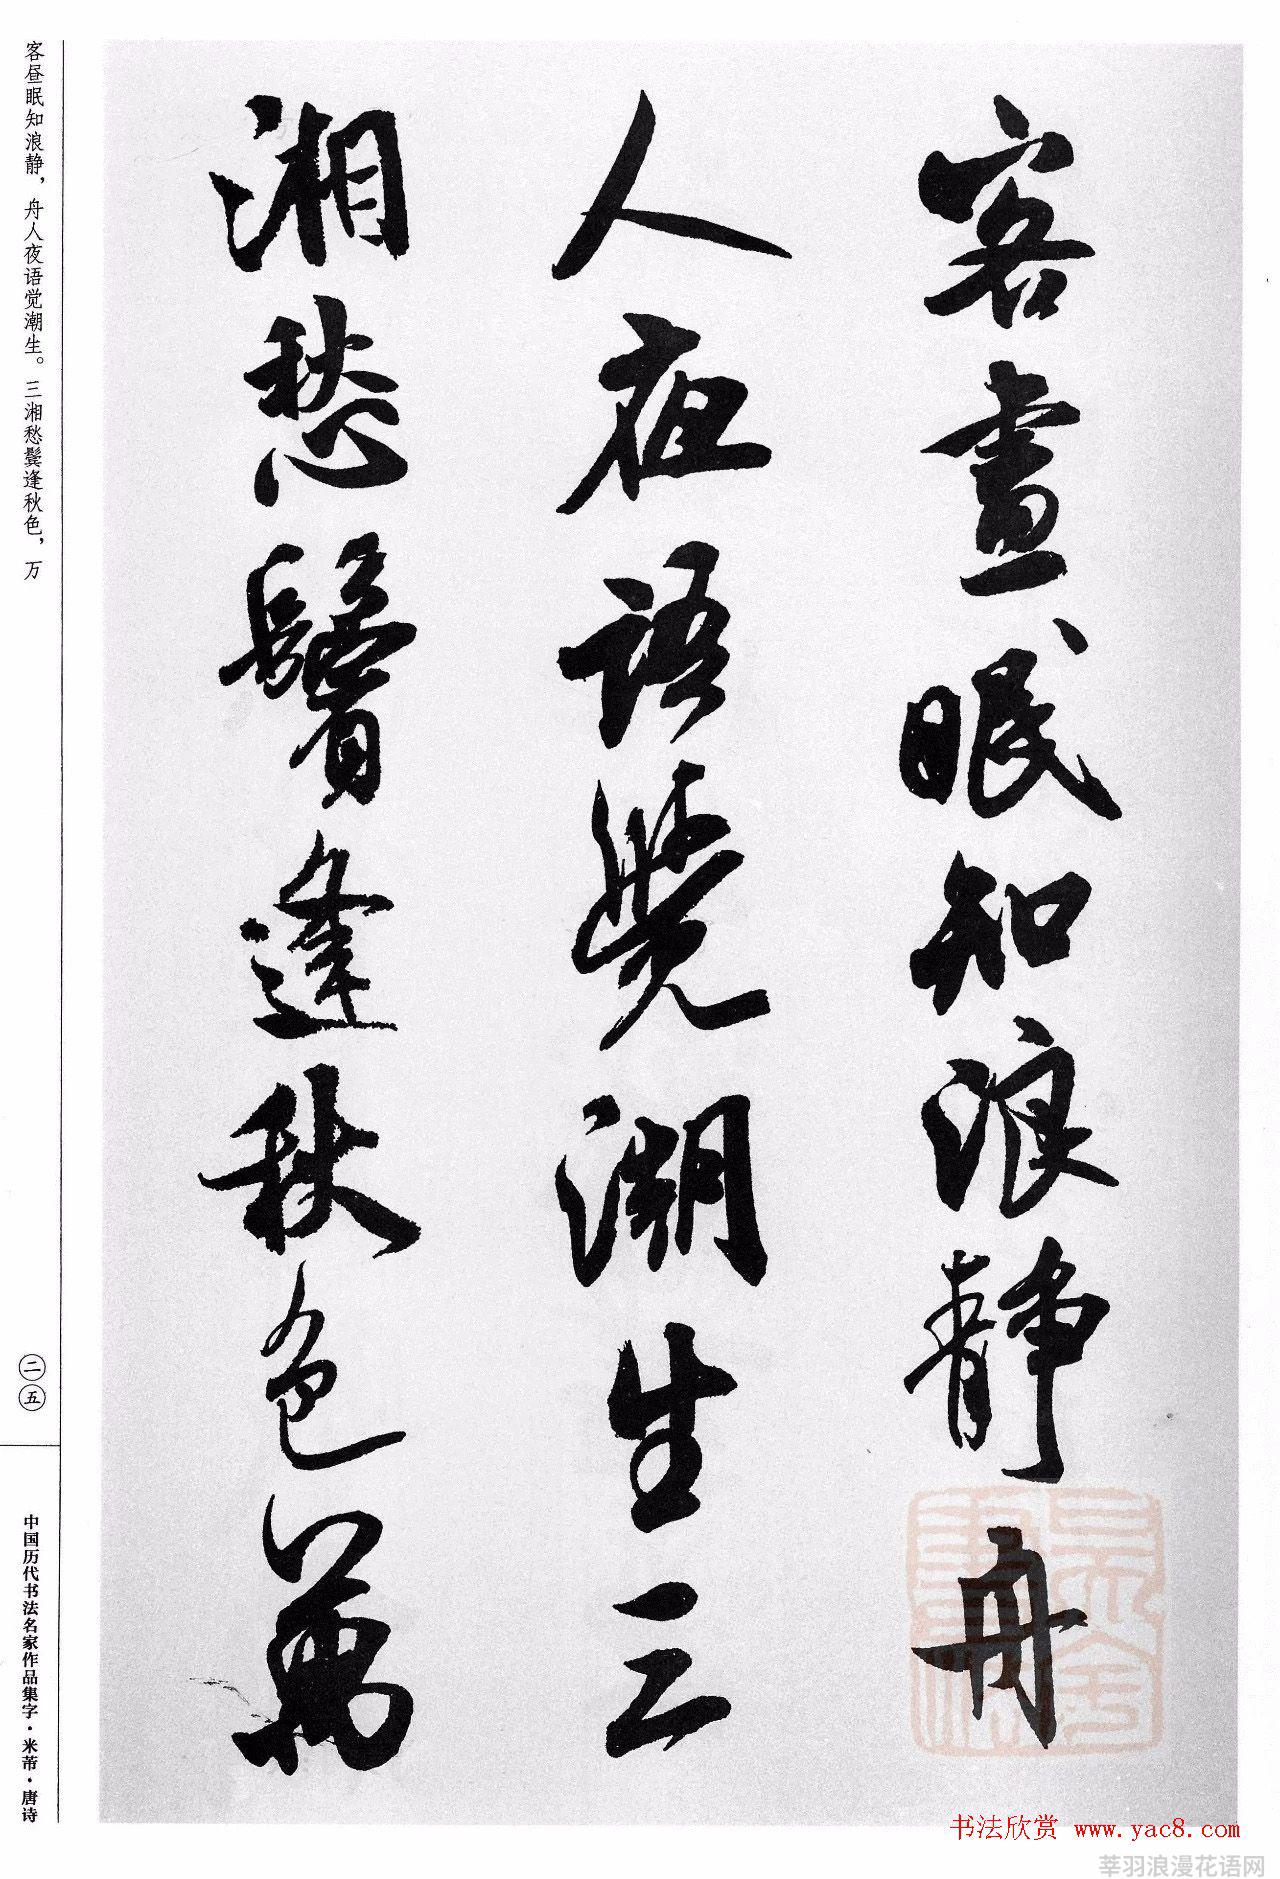 客晝眠知浪靜舟
人夜語覺潮生三
湘愁鬢逢秋色萬
客昼眠知浪静，舟人夜语觉潮生。三湘愁鬓逢秋色，万
二五
中国历代书法名家作品集字·米芾·唐诗
书法欣赏 www.yac8.com
莘羽浪漫花语网